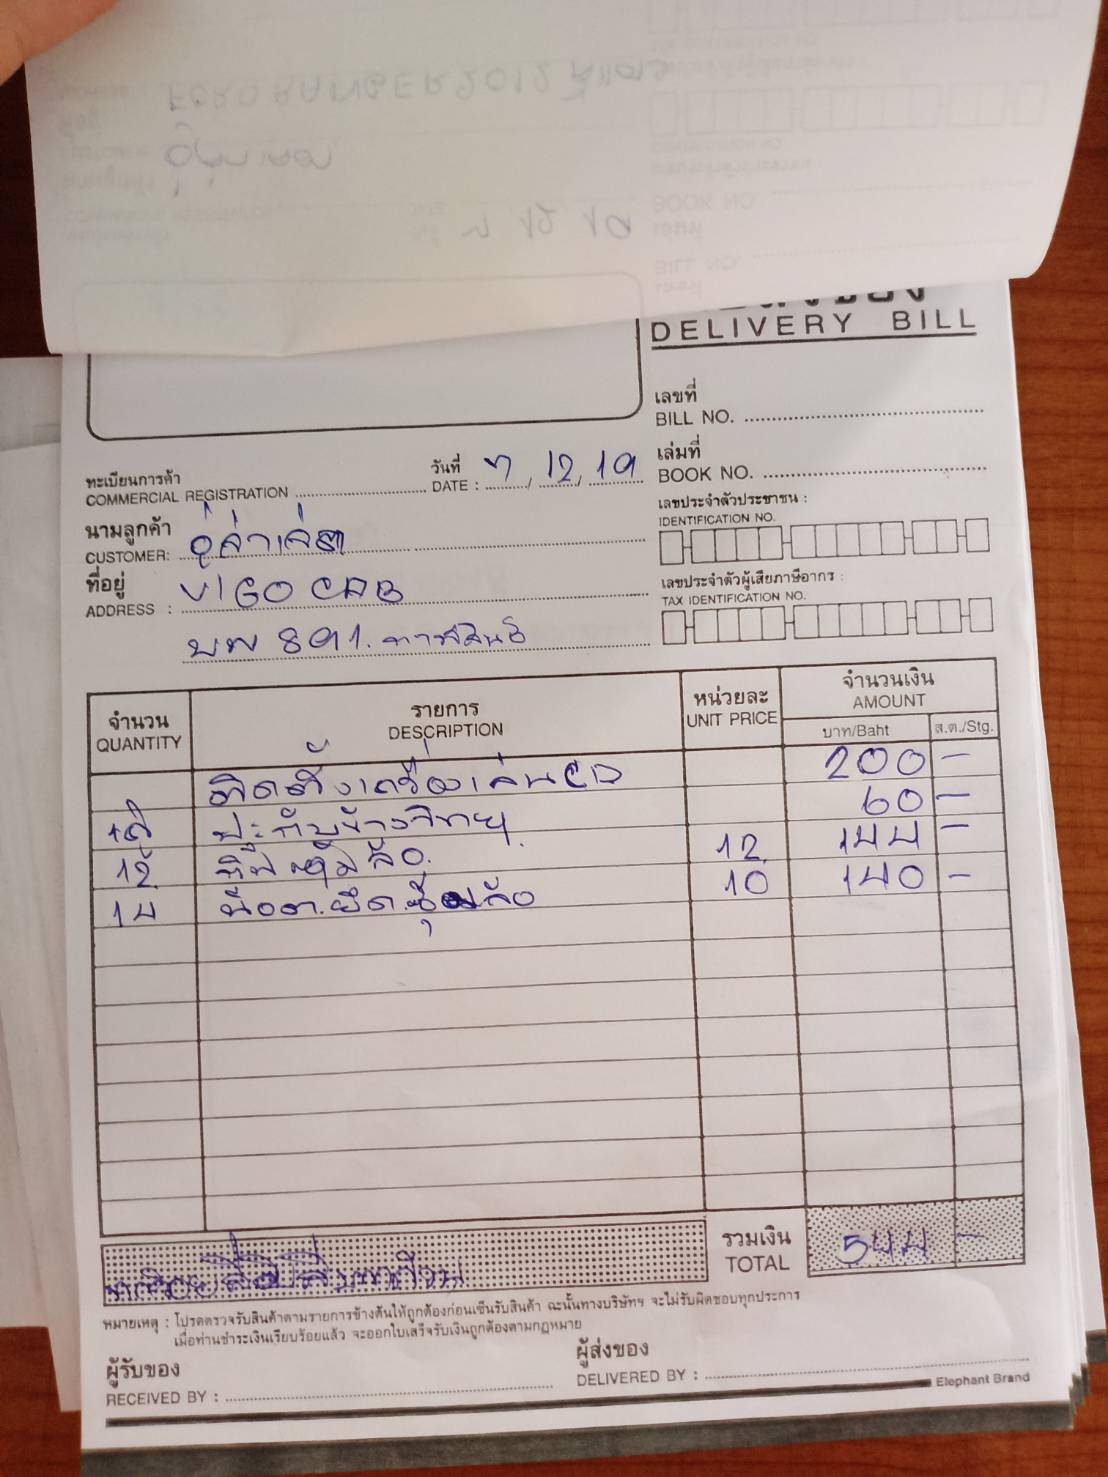 DELIVERY BILL
เลขที่
BILL NO.
ทะเบียนการค้า
COMMERCIAL REGISTRATION
วันที่
DATE : 7, 12, 19
เล่มที่
BOOK NO.
เลขประจำตัวประชาชน :
IDENTIFICATION NO.
นามลูกค้า
CUSTOMER: อู่ล่ำเล่ต
ที่อยู่
ADDRESS : VIGO CAB
บพ 891. กาฬสินธุ์
เลขประจำตัวผู้เสียภาษีอากร :
TAX IDENTIFICATION NO.
จำนวน
QUANTITY
รายการ
DESCRIPTION
หน่วยละ
UNIT PRICE
จำนวนเงิน
AMOUNT
บาท/Baht ส.ต./Stg.
ติดตั้งเครื่องเล่น CD 200 -
ปะกับข้างวิทยุ 60 -
12 กิ๊ฟ ล้อ. 12 144 -
14 น๊อต.ยึด.ซุ้มล้อ 10 140 -
รวมเงิน
TOTAL 544 -
หมายเหตุ : โปรดตรวจรับสินค้าตามรายการข้างต้นให้ถูกต้องก่อนเซ็นรับสินค้า ฉะนั้นทางบริษัทฯ จะไม่รับผิดชอบทุกประการ
เมื่อท่านชำระเงินเรียบร้อยแล้ว จะออกใบเสร็จรับเงินถูกต้องตามกฎหมาย
ผู้รับของ
RECEIVED BY :
ผู้ส่งของ
DELIVERED BY :
Elephant Brand